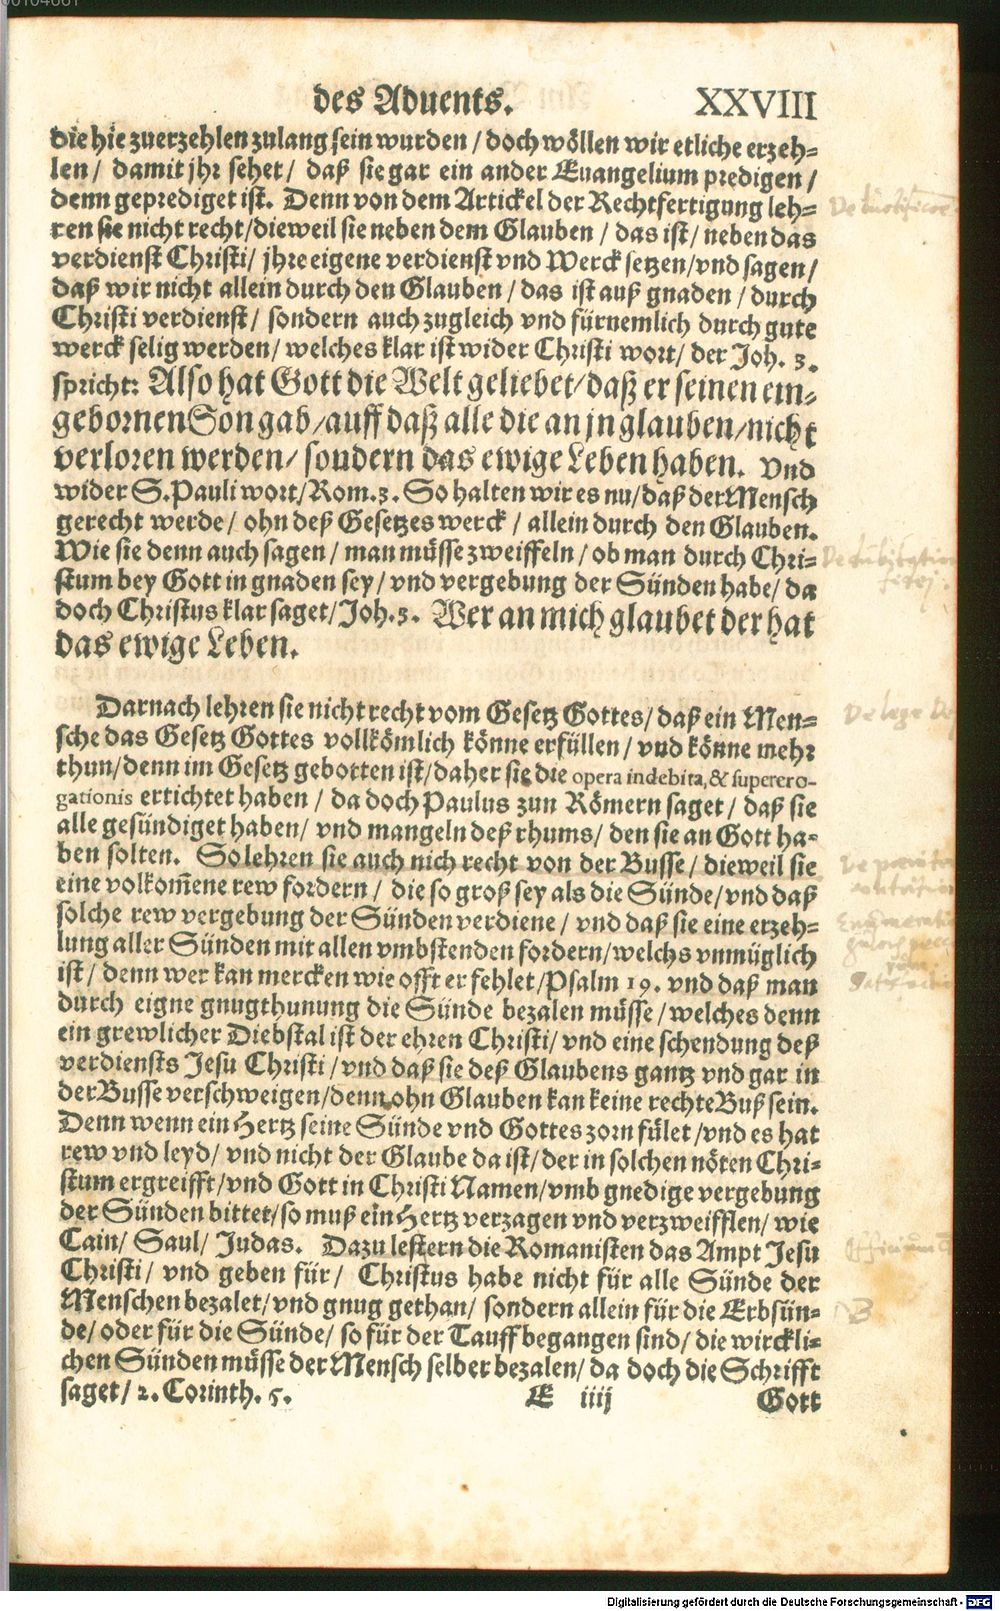 des Aduents. XXVIII
die hie zuerzehlen zulang sein wurden / doch wöllen wir etliche erzeh-
len / damit jhr sehet / daß sie gar ein ander Euangelium predigen /
denn geprediget ist. Denn von dem Artickel der Rechtfertigung leh-
ren sie nicht recht / dieweil sie neben dem Glauben / das ist / neben das
verdienst Christi / jhre eigene verdienst vnd Werck setzen / vnd sagen /
daß wir nicht allein durch den Glauben / das ist auß gnaden / durch
Christi verdienst / sondern auch zugleich vnd fürnemlich durch gute
werck selig werden / welches klar ist wider Christi wort / der Joh. 3.
spricht: Also hat Gott die Welt geliebet / daß er seinen ein-
gebornen Son gab / auff daß alle die an jn glauben / nicht
verloren werden / sondern das ewige Leben haben. Vnd
wider S. Pauli wort / Rom. 3. So halten wir es nu / daß der Mensch
gerecht werde / ohn deß Gesetzes werck / allein durch den Glauben.
Wie sie denn auch sagen / man müsse zweiffeln / ob man durch Chri-
stum bey Gott in gnaden sey / vnd vergebung der Sünden habe / da
doch Christus klar saget / Joh. 3. Wer an mich glaubet der hat
das ewige Leben.
Darnach lehren sie nicht recht vom Gesetz Gottes / daß ein Men-
sche das Gesetz Gottes vollkömlich könne erfüllen / vnd könne mehr
thun / denn im Gesetz gebotten ist / daher sie die opera indebita, & superero-
gationis ertichtet haben / da doch Paulus zun Römern saget / daß sie
alle gesündiget haben / vnd mangeln deß rhums / den sie an Gott ha-
ben solten. So lehren sie auch nich recht von der Busse / dieweil sie
eine volkom̃ene rew fordern / die so groß sey als die Sünde / vnd daß
solche rew vergebung der Sünden verdiene / vnd daß sie eine erzeh-
lung aller Sünden mit allen vmbstenden fordern / welchs vnmüglich
ist / denn wer kan mercken wie offt er fehlet / Psalm 19. vnd daß man
durch eigne gnugthunung die Sünde bezalen müsse / welches denn
ein grewlicher Diebstal ist der ehren Christi / vnd eine schendung deß
verdiensts Jesu Christi / vnd daß sie deß Glaubens gantz vnd gar in
der Busse verschweigen / denn ohn Glauben kan keine rechte Buß sein.
Denn wenn ein Hertz seine Sünde vnd Gottes zorn fület / vnd es hat
rew vnd leyd / vnd nicht der Glaube da ist / der in solchen nöten Chri-
stum ergreifft / vnd Gott in Christi Namen / vmb gnedige vergebung
der Sünden bittet / so muß ein Hertz verzagen vnd verzweifflen / wie
Cain / Saul / Judas. Dazu lestern die Romanisten das Ampt Jesu
Christi / vnd geben für / Christus habe nicht für alle Sünde der
Menschen bezalet / vnd gnug gethan / sondern allein für die Erbsün-
de / oder für die Sünde / so für der Tauff begangen sind / die wirckli-
chen Sünden müsse der Mensch selber bezalen / da doch die Schrifft
saget / 2. Corinth. 5.
E iiij Gott
De lege
NB
Digitalisierung gefördert durch die Deutsche Forschungsgemeinschaft - DFG